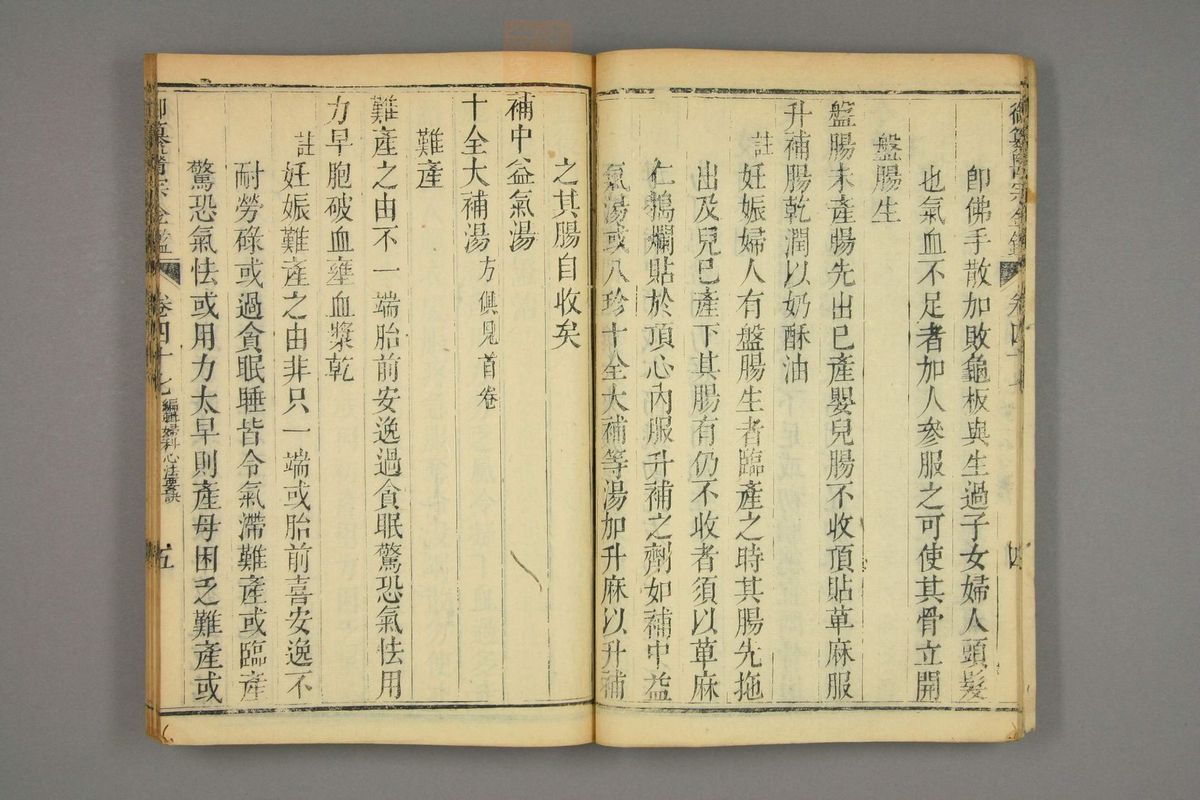 御纂醫宗金鑑 卷四十七 四
卽佛手散加敗龜板與生過子女婦人頭髮
也氣血不足者加人參服之可使其骨立開
盤腸生
盤腸未產腸先出已產嬰兒腸不收頂貼萆麻服
升補腸乾潤以奶酥油
註 妊娠婦人有盤腸生者臨產之時其腸先拖
出及兒已產下其腸有仍不收者須以萆麻
仁搗爛貼於頂心內服升補之劑如補中益
氣湯或八珍十全大補等湯加升麻以升補
之其腸自收矣
補中益氣湯
十全大補湯 方俱見首卷
難產
難產之由不一端胎前安逸過貪眠驚恐氣怯用
力早胞破血壅血漿乾
註 妊娠難產之由非只一端或胎前喜安逸不
耐勞碌或過貪眠睡皆令氣滯難產或臨產
驚恐氣怯或用力太早則產母困乏難產或
御纂醫宗金鑑 卷四十七 編輯婦科心法要訣 五